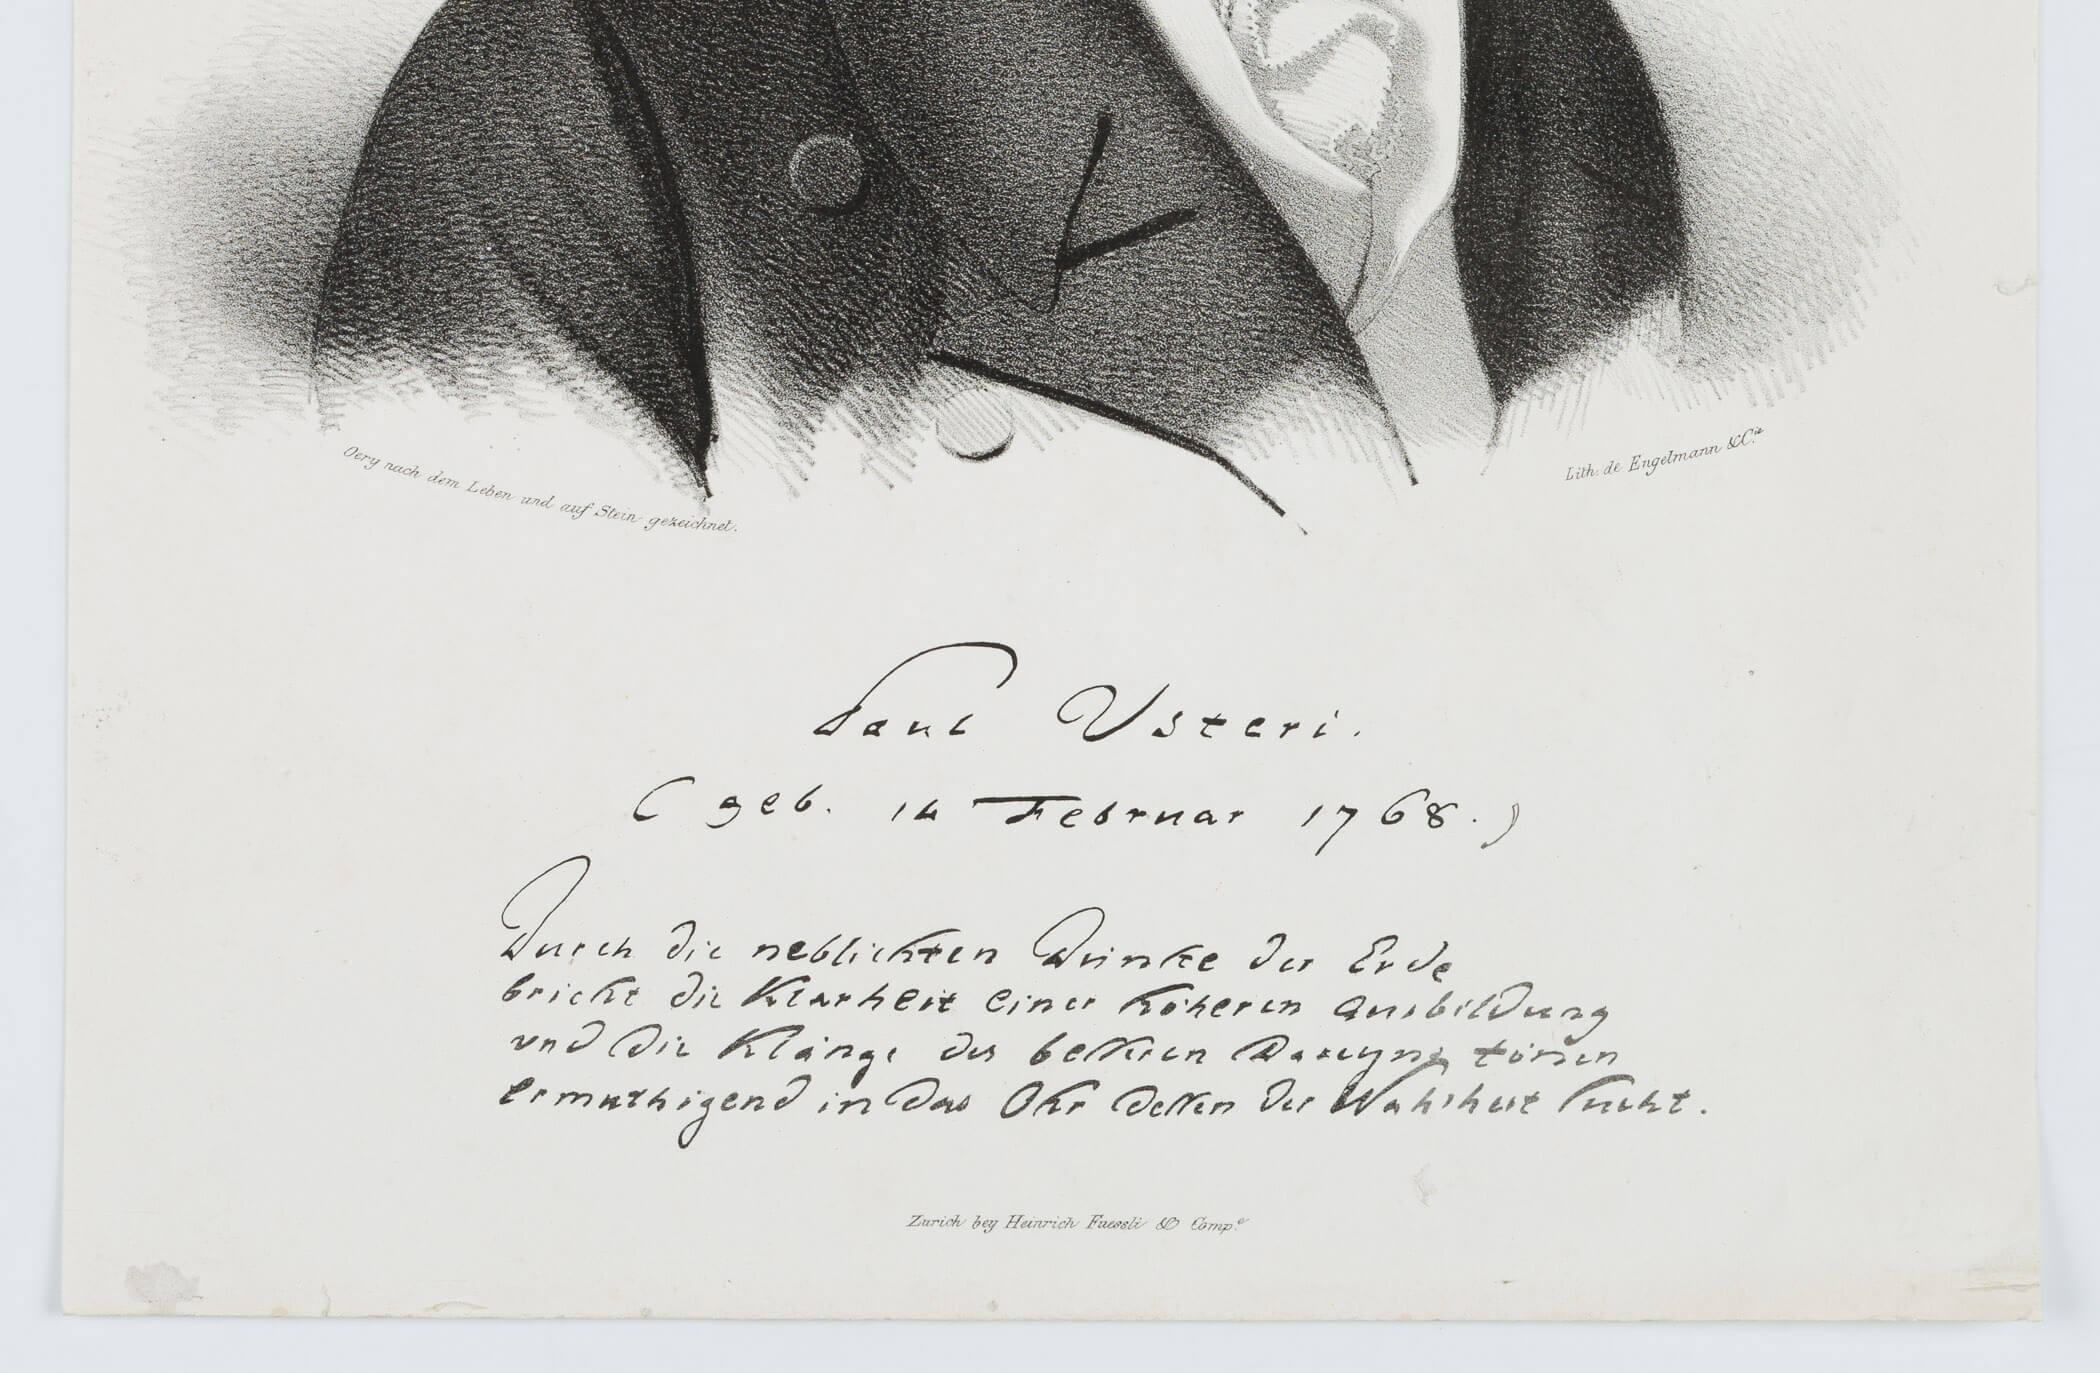 Oery nach dem Leben und auf Stein gezeichnet.
Lith. de Engelmann & Cie
Paul Usteri.
( geb. 14 Februar 1768. )
Durch die neblichten Dünste der Erde
bricht die Klarheit einer höheren Ausbildung
und die Klänge des besseren Daseyns tönen
ermuthigend in das Ohr dessen der Wahrheit sucht.
Zurich bey Heinrich Fuessli & Comp.e